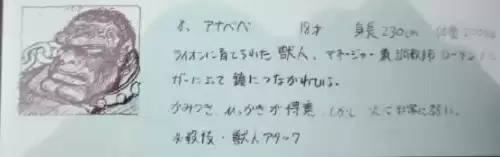 8、アナベベ 18才 身長230cm 体重200kg
ライオンに育てられた獣人、マネージャー兼調教師
ガーによって鎖につながれている。
かみつき、ひっかきが得意、しかし火には非常に弱い。
必殺技・獣人アタック